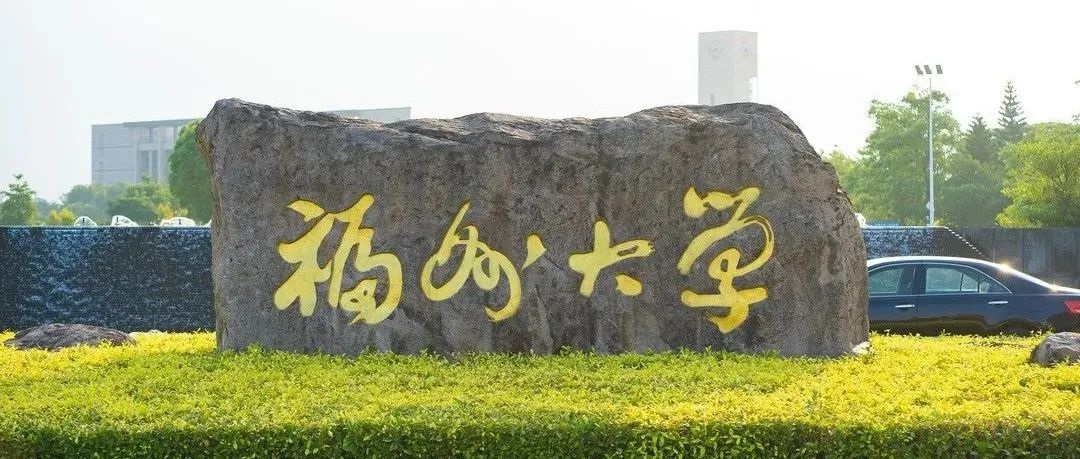 福州大学